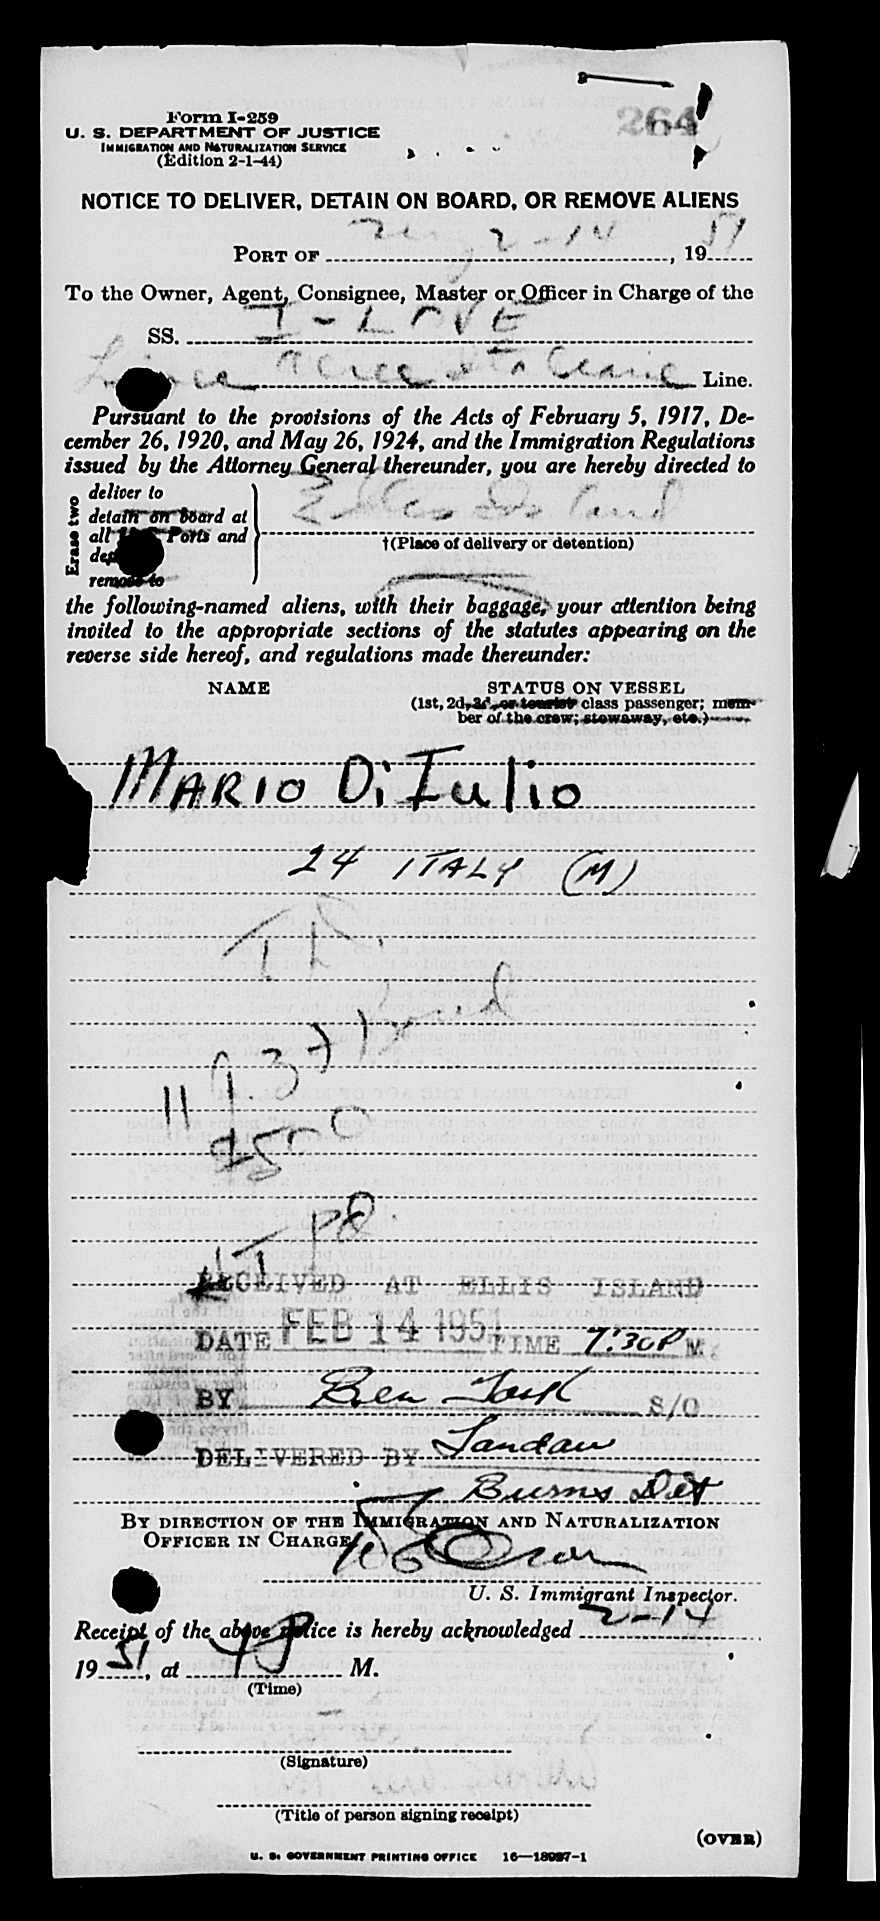 264
Form I-259
U. S. DEPARTMENT OF JUSTICE
IMMIGRATION AND NATURALIZATION SERVICE
(Edition 2-1-44)
NOTICE TO DELIVER, DETAIN ON BOARD, OR REMOVE ALIENS
PORT OF 2-14, 1951
To the Owner, Agent, Consignee, Master or Officer in Charge of the
SS. I-LOVE
Linee Aeree Italiane Line.
Pursuant to the provisions of the Acts of February 5, 1917, De-
cember 26, 1920, and May 26, 1924, and the Immigration Regulations
issued by the Attorney General thereunder, you are hereby directed to
Erase two
deliver to
detain on board at
all Ports and
remove to
Ellis Island
†(Place of delivery or detention)
the following-named aliens, with their baggage, your attention being
invited to the appropriate sections of the statutes appearing on the
reverse side hereof, and regulations made thereunder:
NAME STATUS ON VESSEL
(1st, 2d, 3d, or tourist class passenger; mem-
ber of the crew; stowaway, etc.)
MARIO Di Iulio
24 ITALY (M)
TD.
119.37
500
RECEIVED AT ELLIS ISLAND
DATE FEB 14 1951 TIME 7:30P M.
BY Ben S/O
DELIVERED BY Landau
Burns Det
BY DIRECTION OF THE IMMIGRATION AND NATURALIZATION
OFFICER IN CHARGE
U. S. Immigrant Inspector.
Receipt of the above notice is hereby acknowledged 2-14
1951, at 4P M.
(Time)
(Signature)
(Title of person signing receipt)
(OVER)
U. S. GOVERNMENT PRINTING OFFICE 16—18987-1